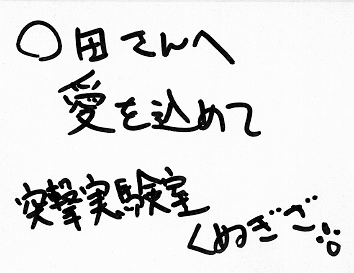 〇田さんへ
愛を込めて
突撃実験室
くぬぎざ